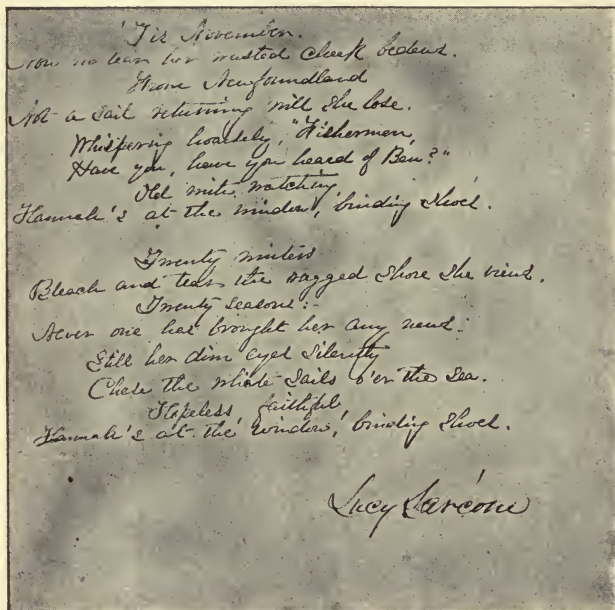 'Tis November.
Now no tear her wasted cheek bedews.
From Newfoundland
Not a sail returning will she lose.
Whispering hoarsely, "Fishermen,
Have you, have you heard of Ben?"
Old with watching,
Hannah's at the window, binding shoes.
Twenty winters
Bleach and tear the ragged shore she views.
Twenty seasons:-
Never one has brought her any news.
Still her dim eyes silently
Chase the white sails o'er the sea.
Hopeless, faithful,
Hannah's at the window, binding shoes.
Lucy Larcom